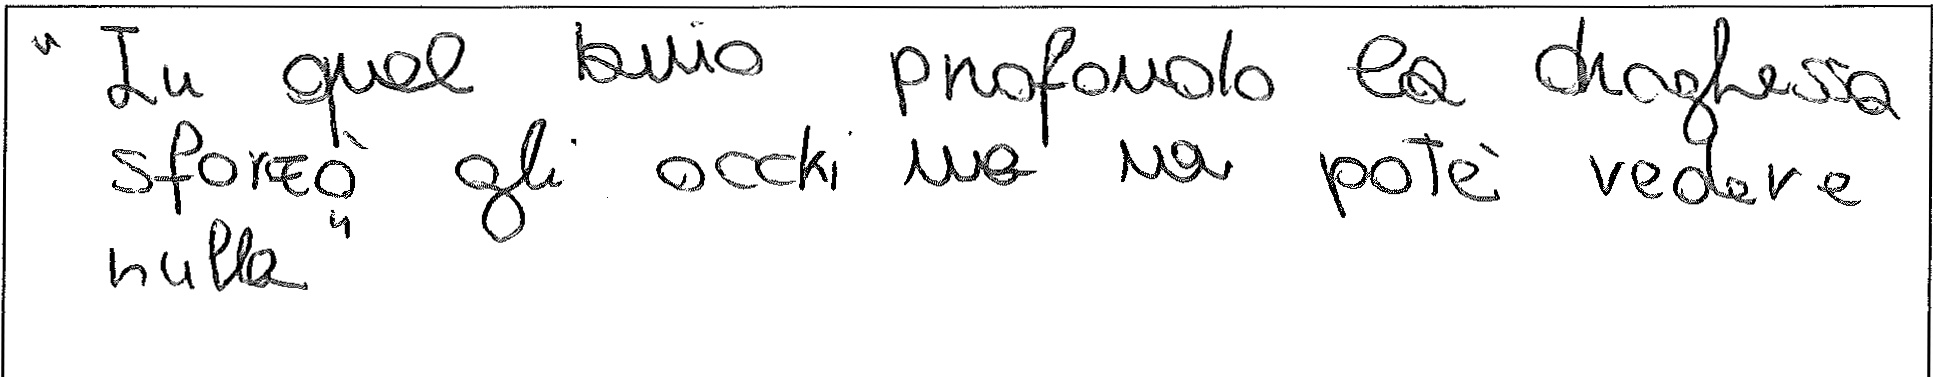 "In quel buio profondo la draghessa
sforzò gli occhi ma na potè vedere
nulla"